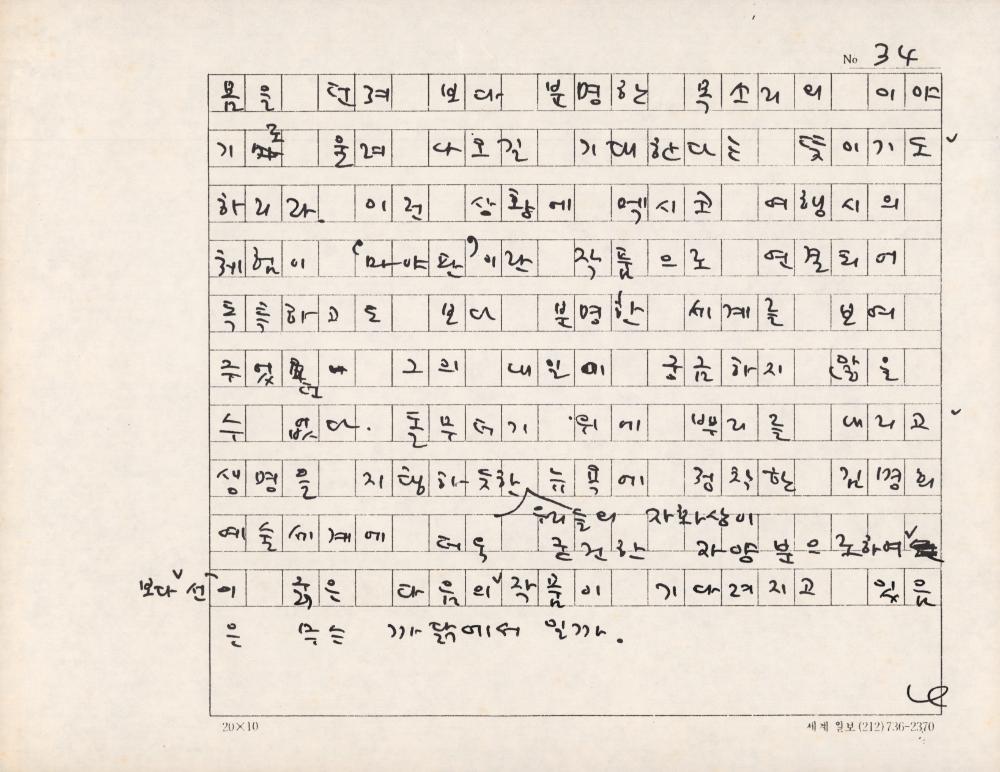 No 34
몸을 던져 보다 분명한 목소리의 이야
기로 울려 나오길 기대한다는 뜻이기도
하리라. 이런 상황에 멕시코 여행시의
체험이 ‘마야판’이란 작품으로 연결되어
독특하고도 보다 분명한 세계를 보여
주었던 그의 내일이 궁금하지 않을
수 없다. 돌무더기 위에 뿌리를 내리고
생명을 지탱하듯한 뉴욕에 정착한 김경희
우리들의 자화상이
예술세계에 더욱 굳건한 자양분으로하여
보다 선이 굵은 다음의 작품이 기다려지고 있음
은 무슨 까닭에서 일까.
20×10
세계일보 (212) 736-2370